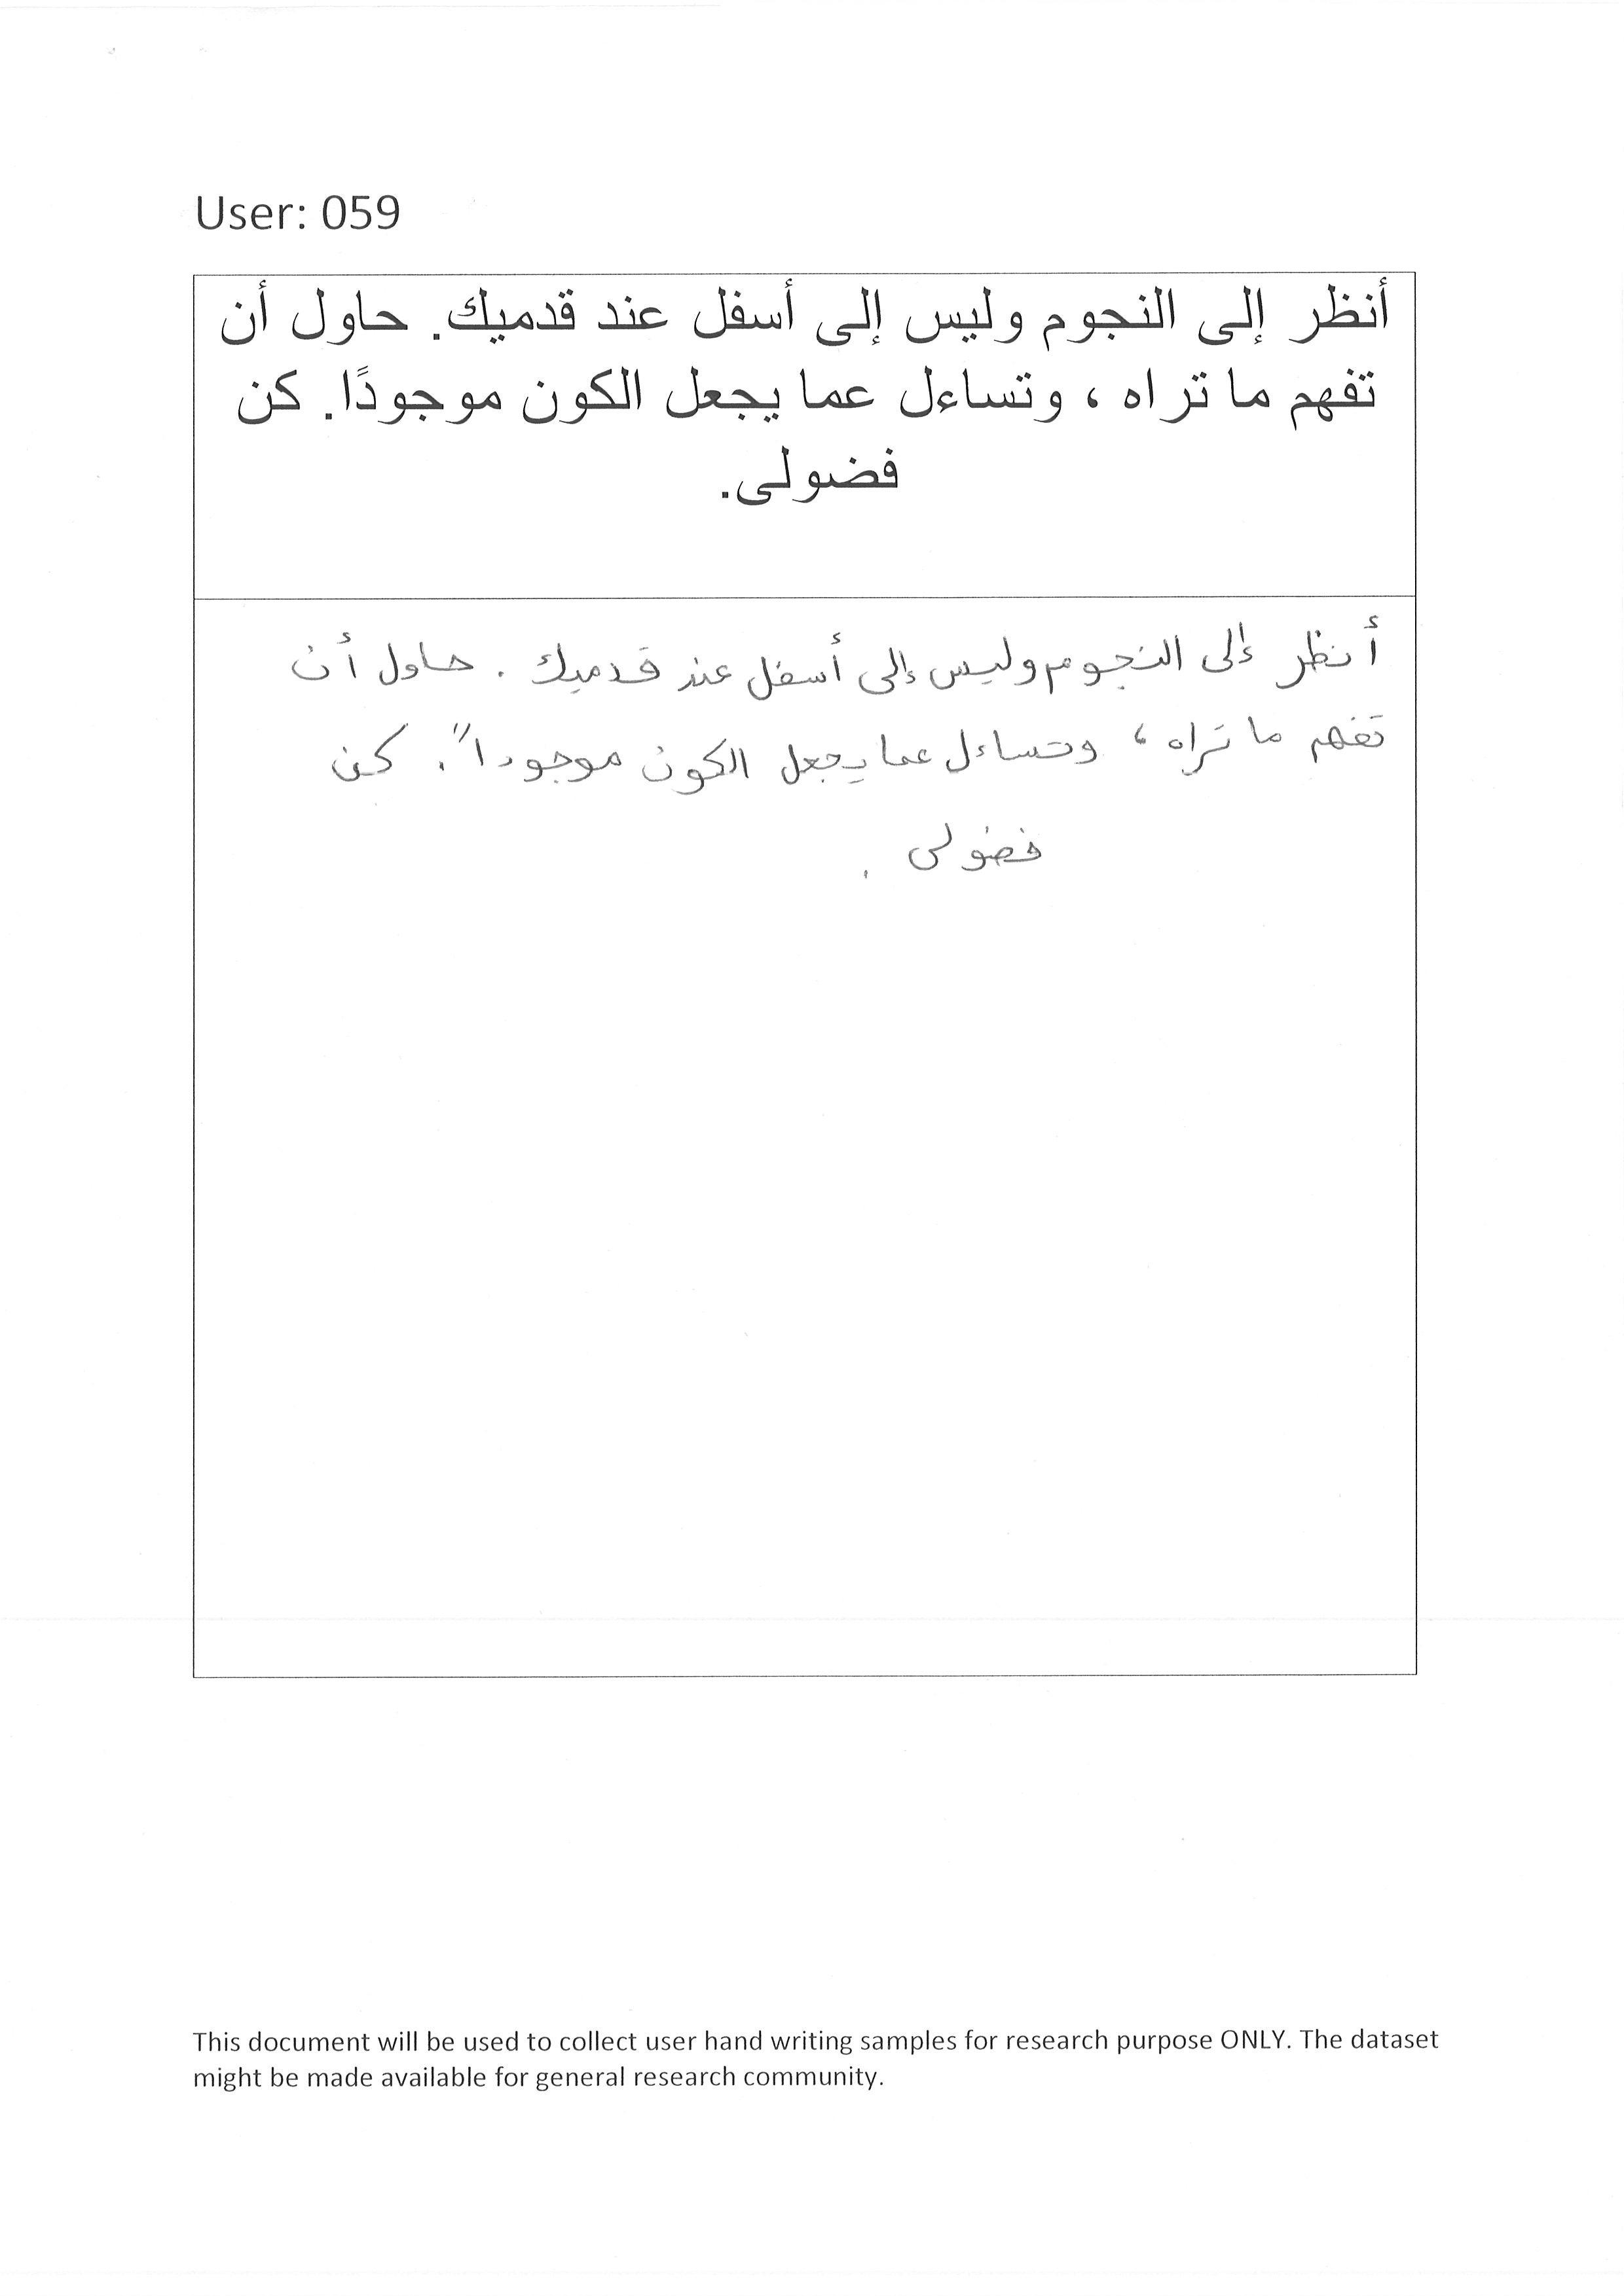 User: 059
أنظر إلى النجوم وليس إلى أسفل عند قدميك. حاول أن
تفهم ما تراه ، وتساءل عما يجعل الكون موجودًا. كن
فضولى.
أنظر إلى النجوم وليس إلى أسفل عند قدميك . حاول أن
تفهم ما تراه ، وتساءل عما يجعل الكون موجوداً . كن
فضولى .
This document will be used to collect user hand writing samples for research purpose ONLY. The dataset
might be made available for general research community.